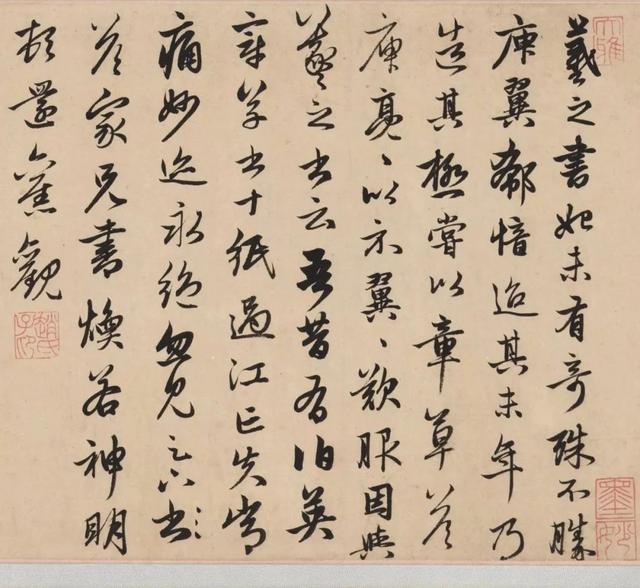 大雅
羲之書始未有奇殊不勝
庾翼郗愔迨其末年乃
造其極嘗以章草答
庾亮、以示翼、歎服因與
羲之書云吾昔有伯英
章草書十紙過江亡失常
痛妙迹永絕忽見足下書
答家兄書煥若神明
頓還舊觀
趙氏子昂